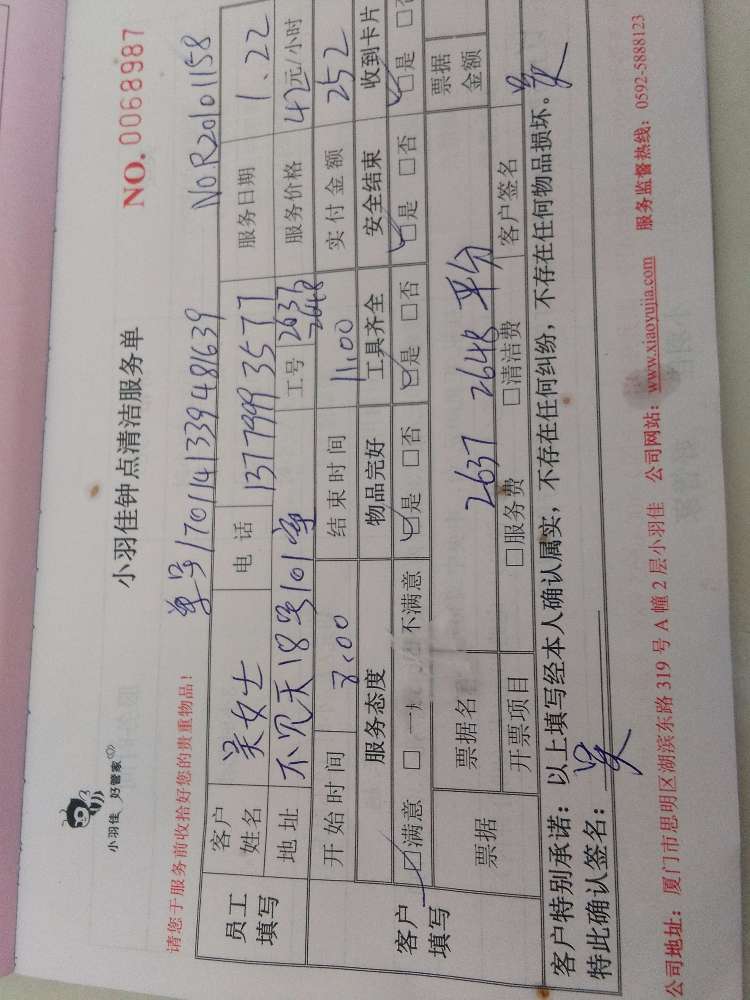 小羽佳 好管家
小羽佳钟点清洁服务单
NO. 0068987
请您于服务前收拾好您的贵重物品!
单号1701141339481639 NOR20101158
员工填写
客户姓名 吴女士 电话 13779993577 服务日期 1.22
地址 不见天18号101室 工号 2637 2648 服务价格 42元/小时
开始时间 8.00 结束时间 11.00 实付金额 252
客户填写
服务态度 物品完好 工具齐全 安全结束 收到卡片
☑满意 □一 不满意 ☑是 □否 ☑是 □否 ☑是 □否 ☑是 □
票据 票据名 2637 2648 平分 票据金额
开票项目 □服务费 □清洁费 客户签名 吴
客户特别承诺:以上填写经本人确认属实,不存在任何纠纷,不存在任何物品损坏。
特此确认签名: 吴
公司地址:厦门市思明区湖滨东路319号A幢2层小羽佳 公司网站:www.xiaoyujia.com 服务监督热线:0592-5888123